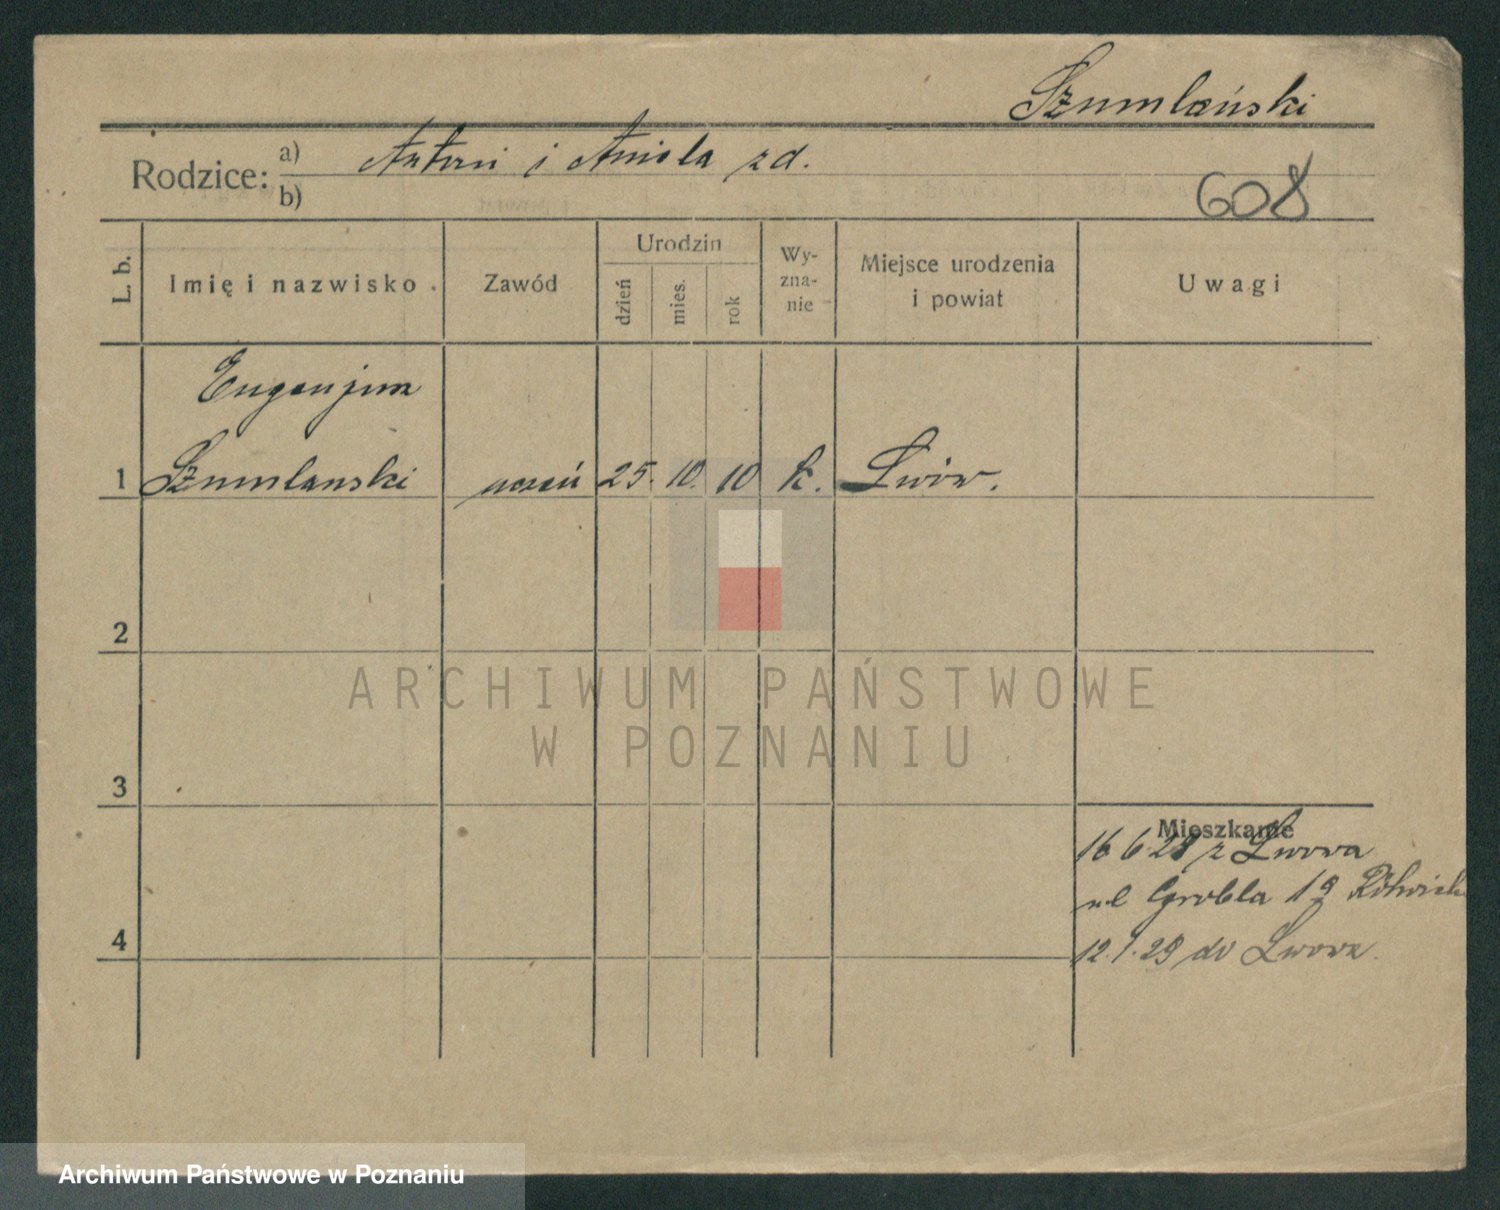 Szumlański
Rodzice: a) Antoni i Aniela zd.
b)
608
L. b.
Imię i nazwisko
Zawód
Urodzin
dzień
mies.
rok
Wy-
zna-
nie
Miejsce urodzenia
i powiat
Uwagi
Eugenjusz
1 Szumlanski uczeń 25. 10. 10 k. Lwów.
2
3
4
Mieszkanie
16 6 28 z Lwowa
ul Grobla 19
12.1.29 do Lwowa.
ARCHIWUM PAŃSTWOWE
W POZNANIU
Archiwum Państwowe w Poznaniu